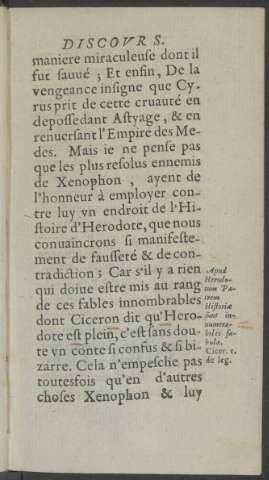 DISCOVRS.
maniere miraculeuse dont il
fut sauué ; Et enfin, De la
vengeance insigne que Cy-
rus prit de cette cruauté en
depossedant Astyage, & en
renuersant l'Empire des Me-
des. Mais ie ne pense pas
que les plus resolus ennemis
de Xenophon, ayent de
l'honneur à employer con-
tre luy vn endroit de l'Hi-
stoire d'Herodote, que nous
conuaincrons si manifeste-
ment de fausseté & de con-
tradiction ; Car s'il y a rien
qui doiue estre mis au rang
de ces fables innombrables
dont Ciceron dit qu'Hero-
dote est plein, c'est sans dou-
te vn conte si confus & si bi-
zarre. Cela n'empesche pas
toutesfois qu'en d'autres
choses Xenophon & luy
Apud
Herodo-
tum Pa-
trem
Historiæ
sunt in-
numera-
biles fa-
bulæ.
Cicer. 1.
de leg.